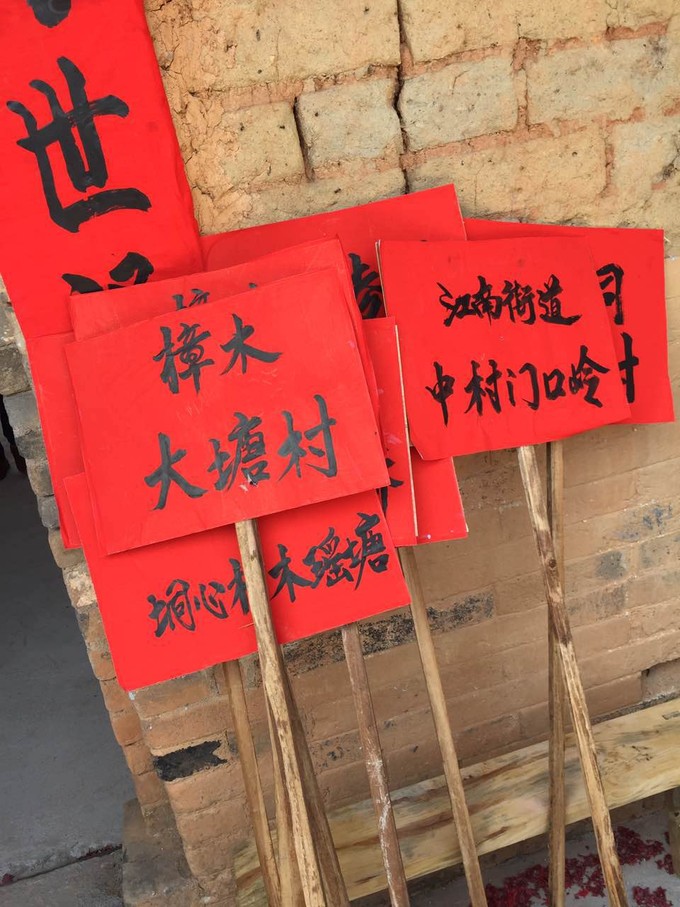 世
樟木
大塘村
江南街道
中村门口岭
垌心村木瑶塘
村